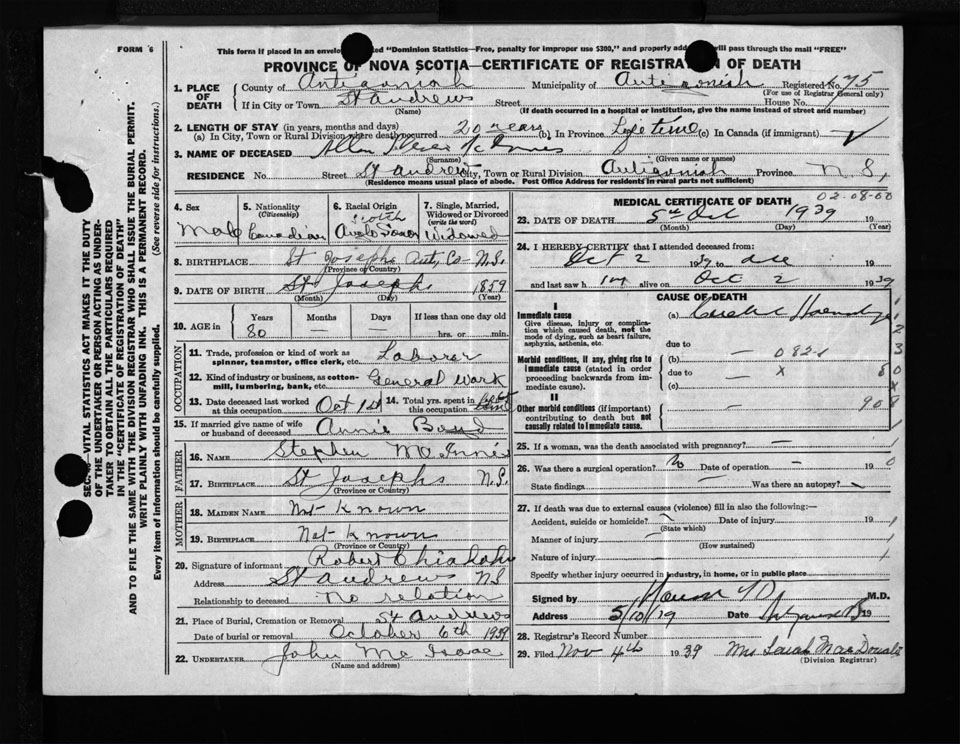 FORM 6
This form if placed in an envelo ed "Dominion Statistics—Free, penalty for improper use $300," and properly add will pass through the mail "FREE"
PROVINCE OF NOVA SCOTIA—CERTIFICATE OF REGISTRATION OF DEATH
1. PLACE OF DEATH
County of Antigonish Municipality of Antigonish Registered No. 675
(For use of Registrar General only)
If in City or Town St Andrews Street House No.
(Name) (If death occurred in a hospital or institution, give the name instead of street and number)
2. LENGTH OF STAY (in years, months and days)
(a) In City, Town or Rural Division where death occurred 20 years (b) In Province Life time (c) In Canada (if immigrant)
3. NAME OF DECEASED Allan McInnes
(Surname) (Given name or names)
RESIDENCE No. Street St Andrews City, Town or Rural Division Antigonish Province N S,
(Residence means usual place of abode. Post Office Address for residents in rural parts not sufficient)
4. Sex
Male
5. Nationality
(Citizenship)
Canadian
6. Racial Origin
Scotch
7. Single, Married, Widowed or Divorced
(write the word)
Widowed
8. BIRTHPLACE St Josephs Ant, Co— N.S.
(Province or Country)
9. DATE OF BIRTH St Josephs 1859
(Month) (Day) (Year)
10. AGE in
Years Months Days If less than one day old
80 — — hrs. or min.
OCCUPATION
11. Trade, profession or kind of work as spinner, teamster, office clerk, etc. Laborer
12. Kind of industry or business, as cotton-mill, lumbering, bank, etc. General Work
13. Date deceased last worked at this occupation Oct 1st
14. Total yrs. spent in this occupation
15. If married give name of wife or husband of deceased Annie Boyd
FATHER
16. NAME Stephen McInnes
17. BIRTHPLACE St Josephs N.S.
(Province or Country)
MOTHER
18. MAIDEN NAME Not Known
19. BIRTHPLACE Not Known
(Province or Country)
20. Signature of informant Robert
Address St Andrews NS
Relationship to deceased No relation
21. Place of Burial, Cremation or Removal St Andrews
Date of burial or removal October 6th 1939
22. UNDERTAKER John McIsaac
(Name and address)
MEDICAL CERTIFICATE OF DEATH
23. DATE OF DEATH 5th Oct 1939 19
(Month) (Day) (Year)
24. I HEREBY CERTIFY that I attended deceased from:
Oct 2 1939 to
and last saw h alive on Oct 2 1939
CAUSE OF DEATH
I
Immediate cause
Give disease, injury or complication which caused death, not the mode of dying, such as heart failure, asphyxia, asthenia, etc.
(a)
due to
Morbid conditions, if any, giving rise to immediate cause (stated in order proceeding backwards from immediate cause).
(b) —
due to — x
(c)
II
Other morbid conditions (if important) contributing to death but not causally related to immediate cause.
25. If a woman, was the death associated with pregnancy? —
26. Was there a surgical operation? No Date of operation — 19
State findings Was there an autopsy?
27. If death was due to external causes (violence) fill in also the following:—
Accident, suicide or homicide? Date of injury 19
(State which)
Manner of injury
(How sustained)
Nature of injury
Specify whether injury occurred in industry, in home, or in public place
Signed by M.D.
Address 5/10/39 Date 19
28. Registrar's Record Number
29. Filed Nov 4th 1939 Mrs Sarah MacDonald
(Division Registrar)
VITAL STATISTICS ACT MAKES IT THE DUTY
OF THE UNDERTAKER OR PERSON ACTING AS UNDER-
TAKER TO OBTAIN ALL THE PARTICULARS REQUIRED
IN THE "CERTIFICATE OF REGISTRATION OF DEATH"
AND TO FILE THE SAME WITH THE DIVISION REGISTRAR WHO SHALL ISSUE THE BURIAL PERMIT.
WRITE PLAINLY WITH UNFADING INK. THIS IS A PERMANENT RECORD.
Every item of information should be carefully supplied. (See reverse side for instructions.)